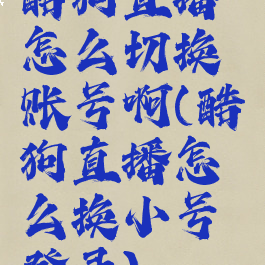 酷狗直播
怎么切换
账号啊(酷
狗直播怎
么换小号
登录)